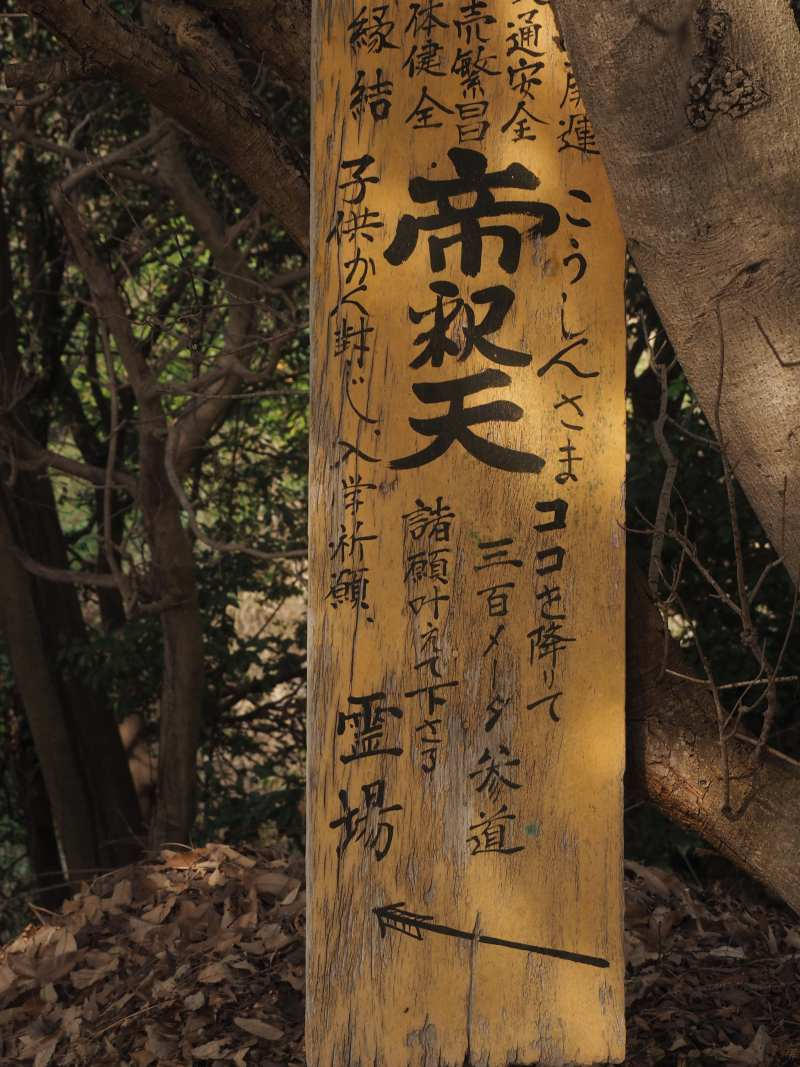 開運
通安全
売繁昌
体健全
縁結
こうしんさま
帝釈天
ココを降りて
三百メータ参道
諸願叶えて下さる
子供かん封じ、入学祈願、
霊場